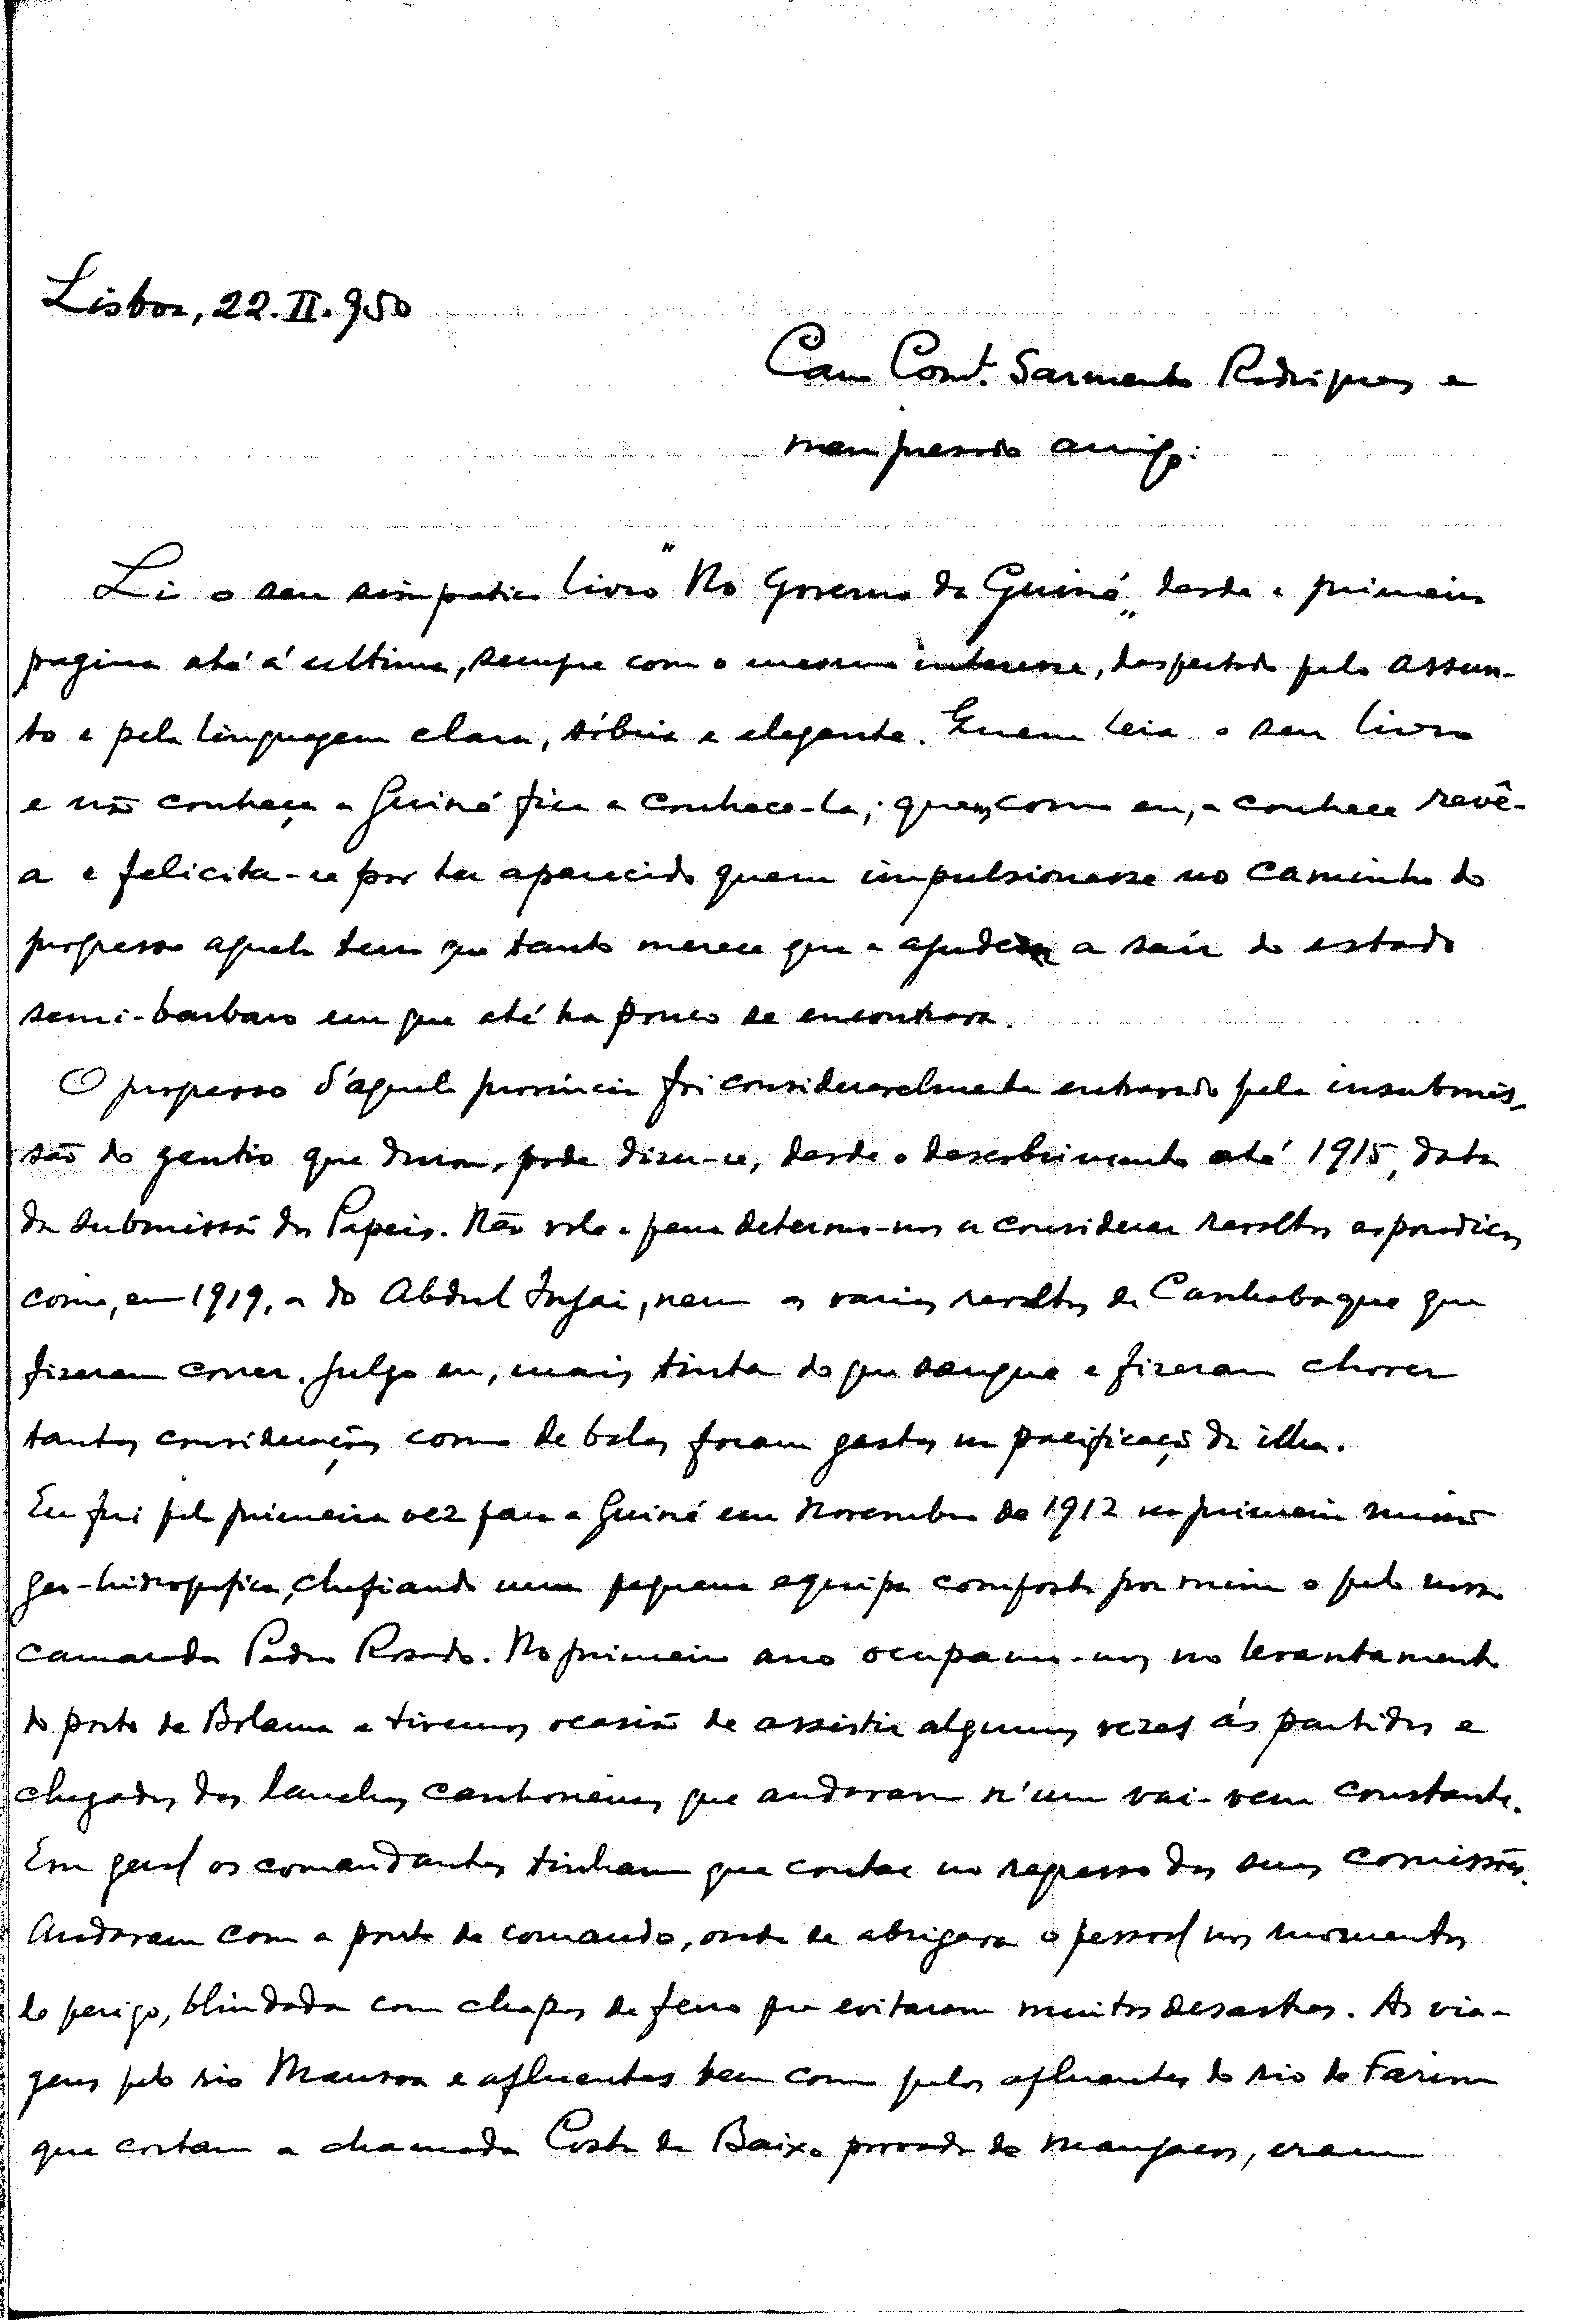 Lisboa, 22.II.950
Caro Comt. Sarmento Rodrigues e
meu presado amigo:
Li o seu simpatico livro "No Governo da Guiné" desde a primeira
pagina até á ultima, sempre com o mesmo interesse, despertado pelo assun-
to e pela linguagem clara, sóbria e elegante. Quem leia o seu livro
e não conheça a Guiné fica a conhece-la; quem, como eu, a conhece revê-
a e felicita-se por ter aparecido quem impulsionasse no caminho do
progresso aquela terra que tanto merece que a ajudem a sair do estado
semi-barbaro em que até ha pouco se encontrava.
O progresso d'aquela provincia foi consideravelmente entravado pela insubmis-
são do gentio que durou, pode dizer-se, desde o descobrimento até 1915, data
da submissão dos Papeis. Não vale a pena determo-nos a considerar revoltas esporadicas
como, em 1919, a do Abdul Injai, nem as varias revoltas de Canhabaque que
fizeram correr, julgo eu, mais tinta do que sangue e fizeram chover
tantas considerações como de balas foram gastas na pacificação da ilha.
Eu fui pela primeira vez para a Guiné em Novembro de 1912 na primeira missão
geo-hidrografica, chefiando uma pequena equipa composta por mim e pelo nosso
camarada Pedro Rosado. No primeiro ano ocupamo-nos no levantamento
do porto de Bolama e tivemos ocasião de assistir algumas vezes ás partidas e
chegadas das lanchas canhoneiras que andavam n'um vai-vem constante.
Em geral os comandantes tinham que contar no regresso das suas comissões.
Andavam com a ponte de comando, onde se abrigava o pessoal nos momentos
de perigo, blindada com chapas de ferro que evitaram muitos desastres. As via-
gens pelo rio Mansoa e afluentes bem como pelos afluentes do rio de Farim
que cortam a chamada Costa de Baixo povoada de Manjacos, eram